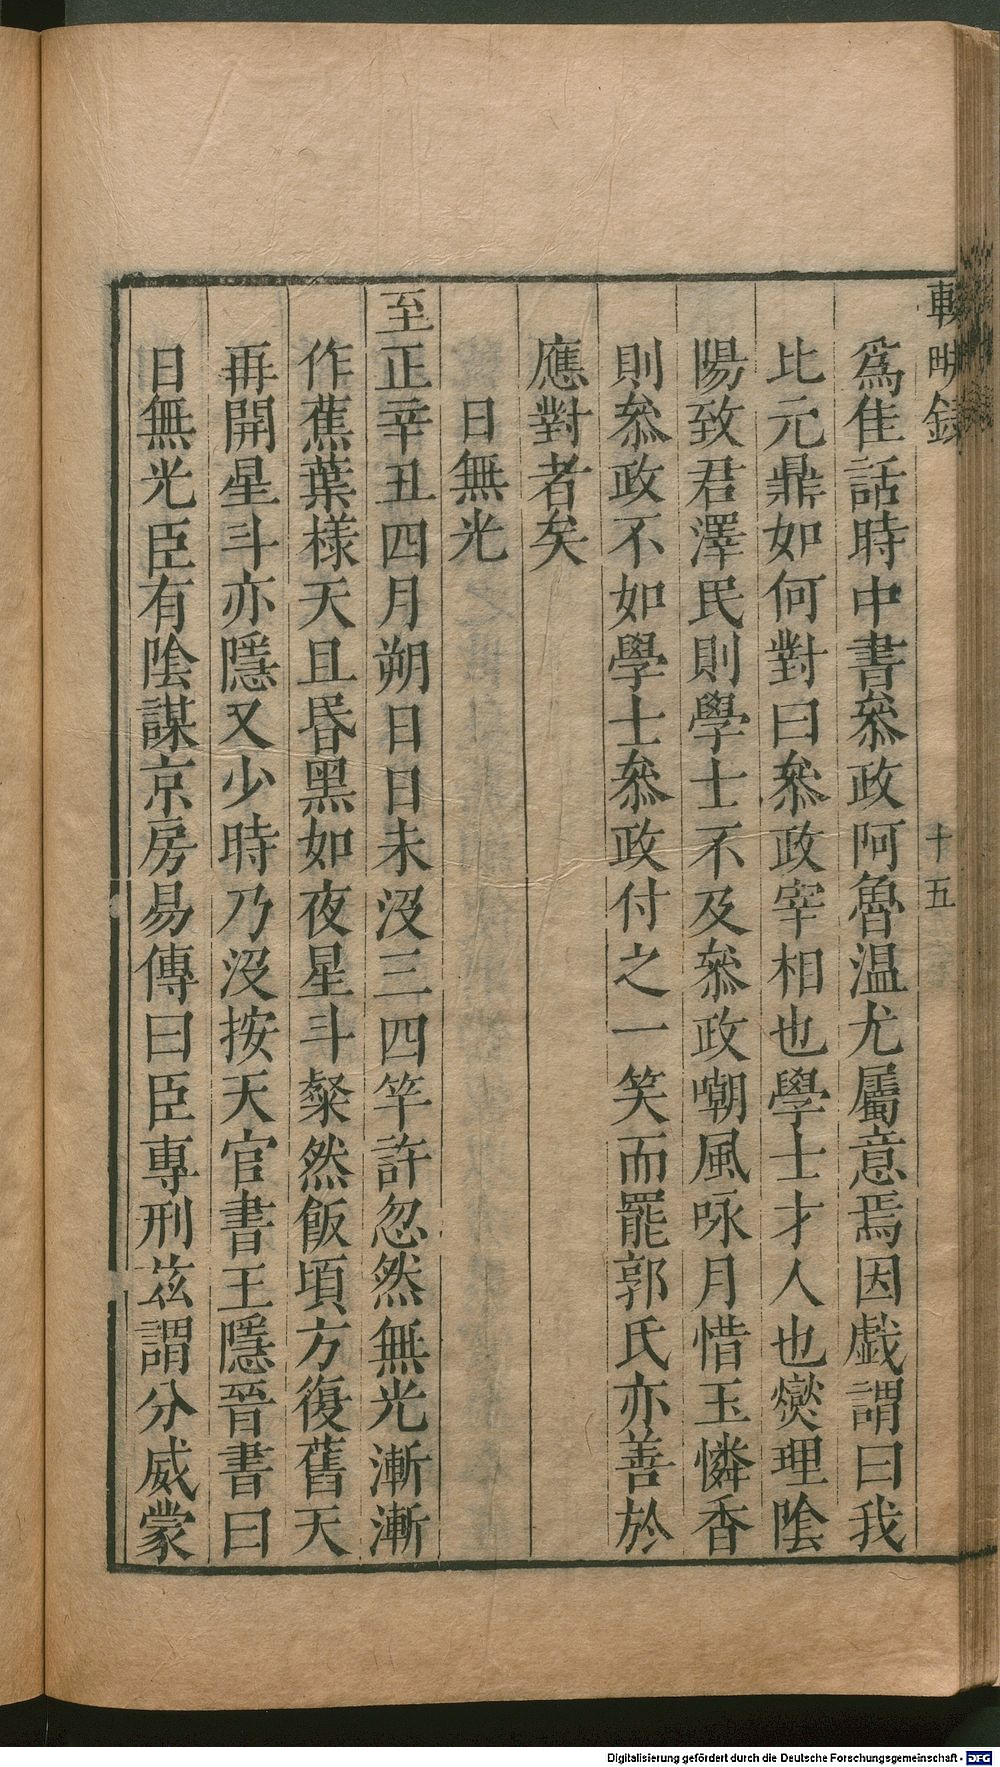 輟畊錄 十五
爲佳話時中書叅政阿魯溫尤屬意焉因戯謂曰我
比元鼎如何對曰叅政宰相也學士才人也爕理隂
陽致君澤民則學士不及叅政嘲風咏月惜玉憐香
則叅政不如學士叅政付之一笑而罷郭氏亦善於
應對者矣
日無光
至正辛丑四月朔日日未沒三四竿許忽然無光漸漸
作蕉葉樣天且昏黑如夜星斗粲然飯頃方復舊天
再開星斗亦隱又少時乃沒按天官書王隱晉書曰
日無光臣有隂謀京房易傳曰臣專刑茲謂分威蒙
Digitalisierung gefördert durch die Deutsche Forschungsgemeinschaft - DFG